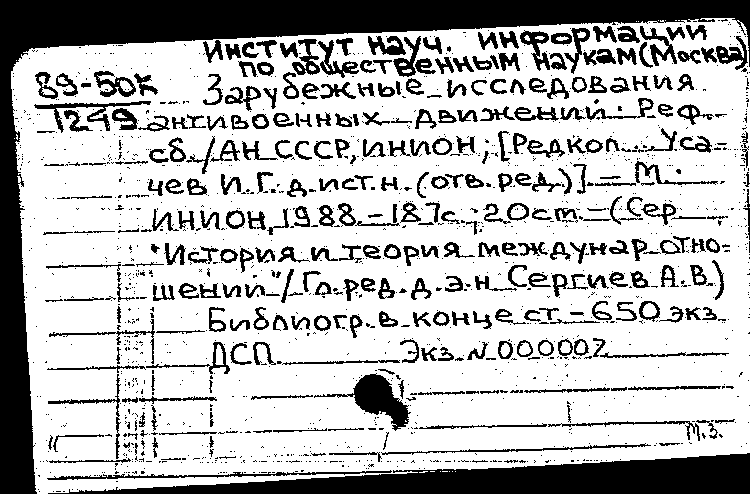 Институт науч. информации
по общественным наукам (Москва)
89-50к
1249
Зарубежные исследования
антивоенных движений: Реф.
сб./АН СССР, ИНИОН; [Редкол.... Уса-
чев И.Г. д.ист.н. (отв.ред.)]. – М.:
ИНИОН, 1988. – 187с.; 20см. – (Сер
"История и теория междунар отно-
шений"/Гл.ред.д.э.н Сергиев А.В.)
Библиогр. в конце ст. – 650 экз
ДСП Экз. N 000007
М.З.